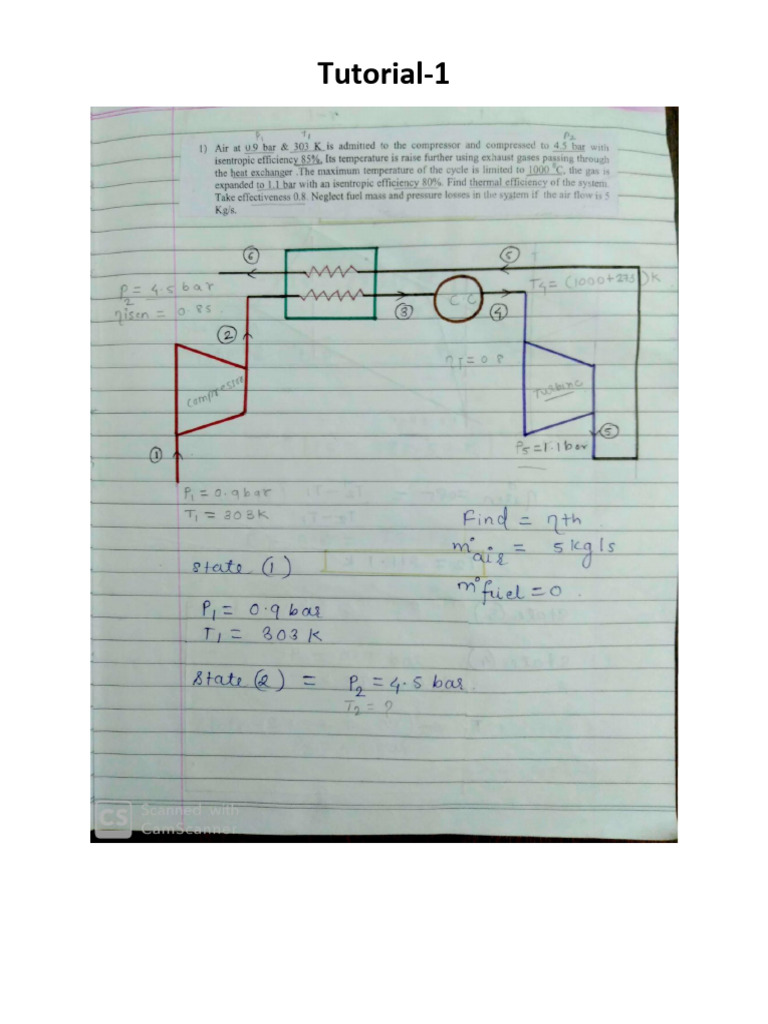 Tutorial-1
P1 T1 P2
1) Air at 0.9 bar & 303 K is admitted to the compressor and compressed to 4.5 bar with
isentropic efficiency 85%, Its temperature is raise further using exhaust gases passing through
the heat exchanger .The maximum temperature of the cycle is limited to 1000 °C, the gas is
expanded to 1.1 bar with an isentropic efficiency 80%. Find thermal efficiency of the system.
Take effectiveness 0.8. Neglect fuel mass and pressure losses in the system if the air flow is 5
Kg/s.
6 5
P2 = 4.5 bar
T4 = (1000+273)K
ηisen = 0.85
C C
3 4
2
ηT = 0.8
Compressor
Turbine
5
1
P5 = 1.1 bar
P1 = 0.9 bar
T1 = 303K
Find = ηth
m°air = 5 kg/s
State (1)
m°fuel = 0.
P1 = 0.9 bar
T1 = 303 K
State (2) = P2 = 4.5 bar.
T2 = ?
CS Scanned with
CamScanner